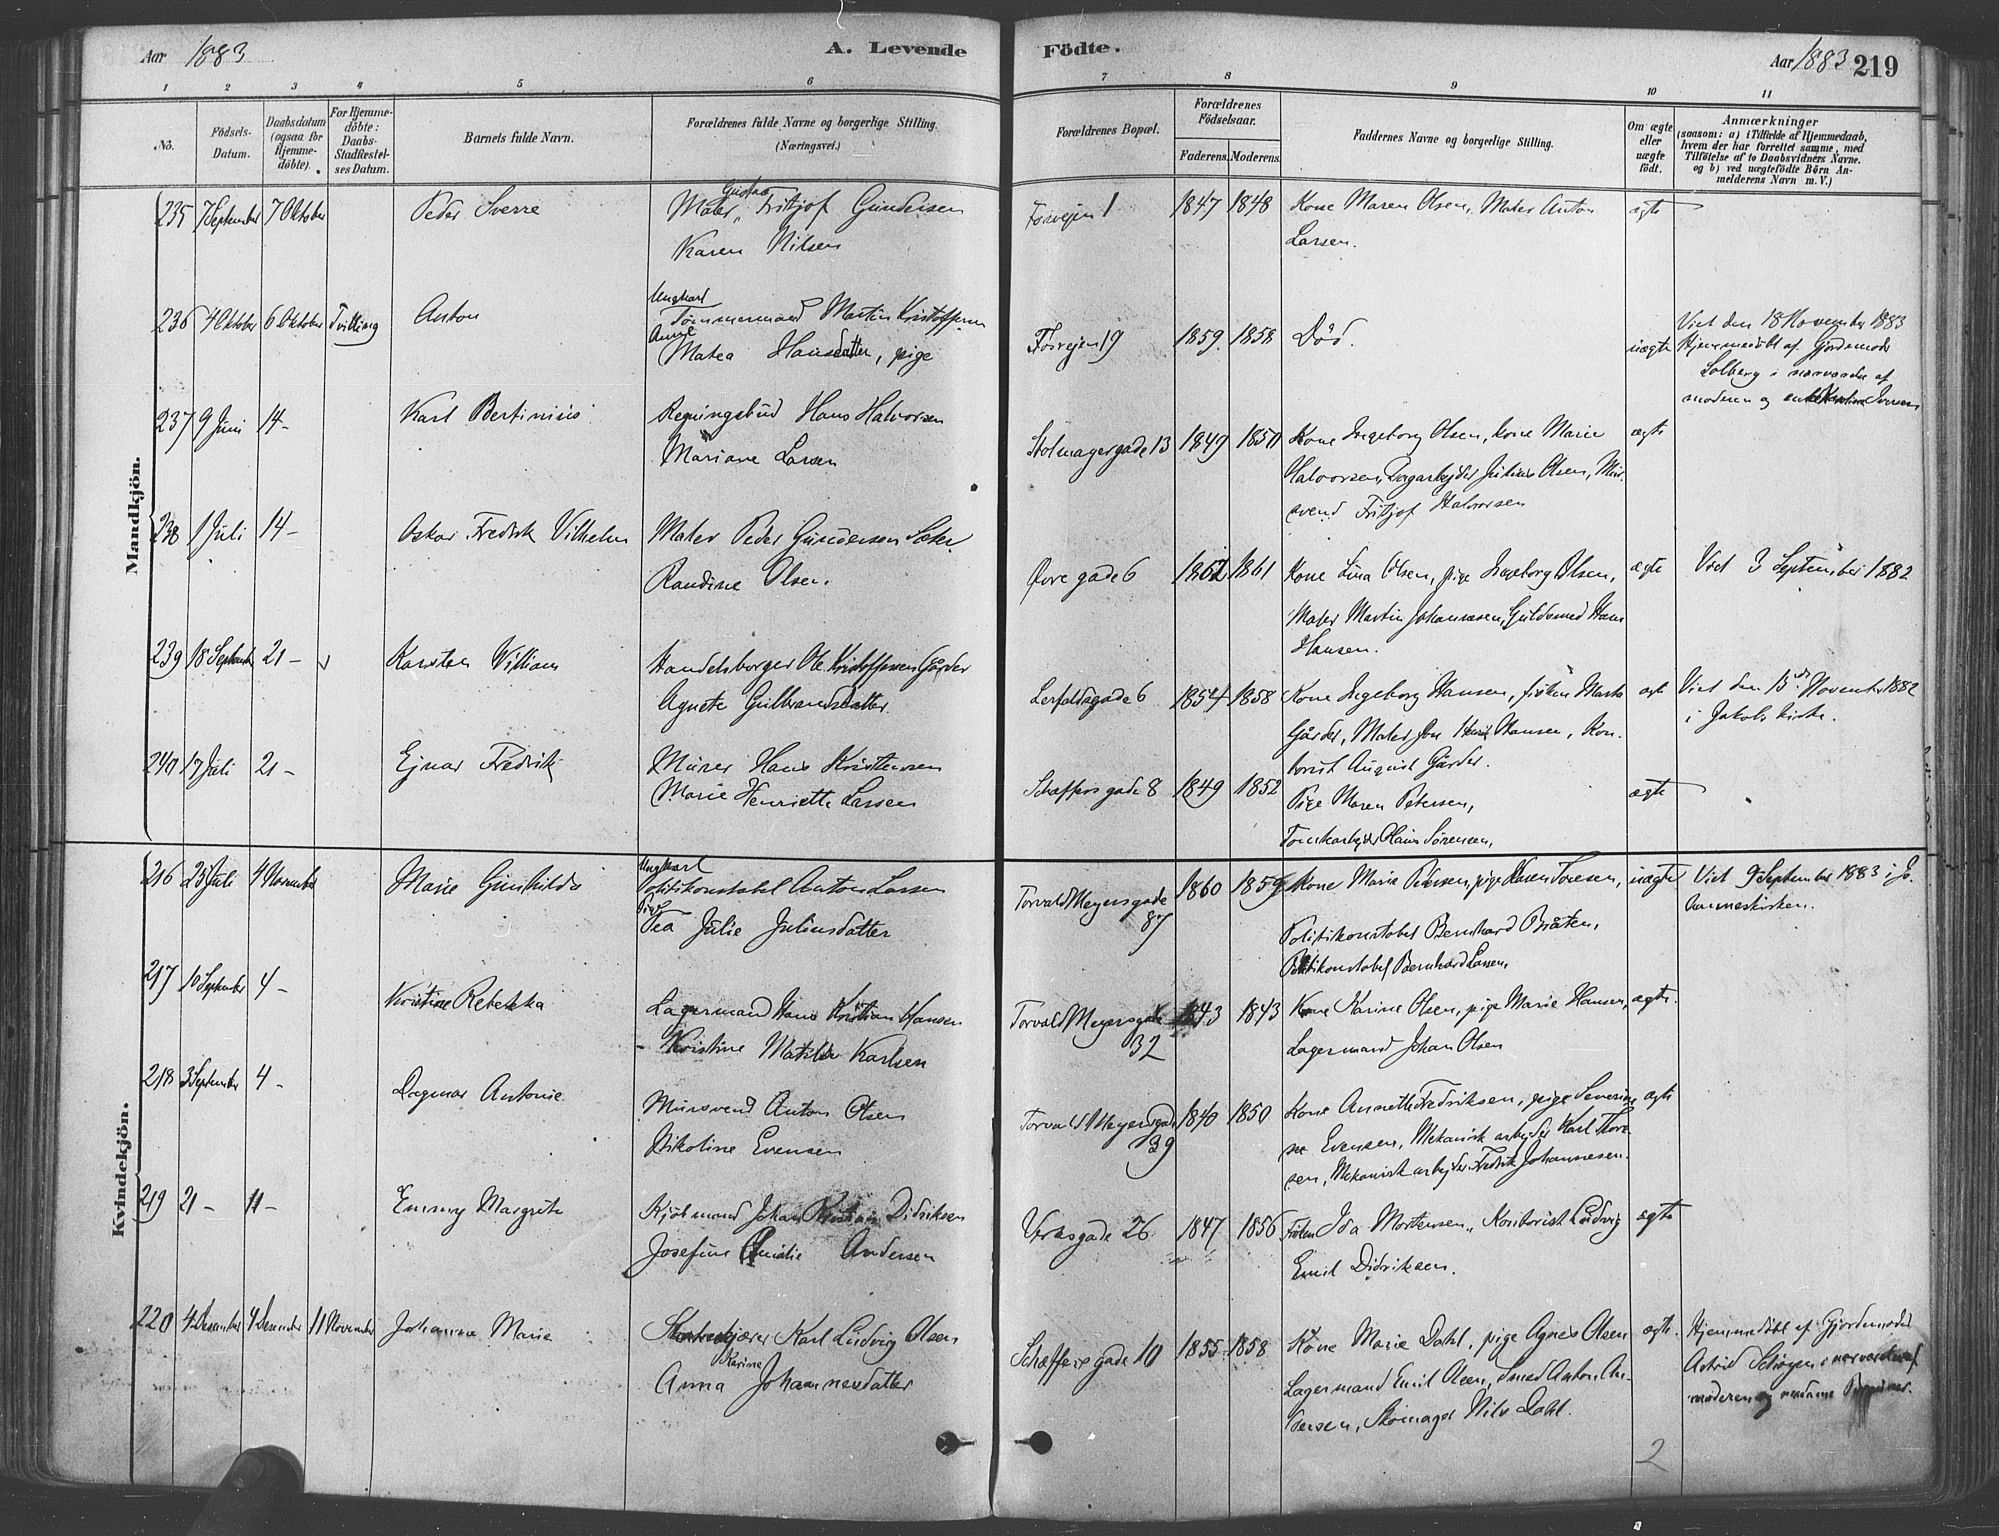 Aar 1883
A. Levende
Födte.
Aar 1883
219
1 2 3 4 5 6 7 8 9 10 11
No.
Födsels-
Datum.
Daabsdatum
(ogsaa for
Hjemme-
döbte).
For Hjemme-
döbte:
Daabs-
Stadfæstel-
ses Datum.
Barnets fulde Navn.
Forældrenes fulde Navne og borgerlige Stilling.
(Næringsvei.)
Forældrenes Bopæl.
Forældrenes
Födselsaar.
Faderens. Moderens.
Faddernes Navne og borgerlige Stilling.
Om ægte
eller
uægte
födt.
Anmærkninger
(saasom: a) i Tilfælde af Hjemmedaab,
hvem der har forrettet samme, med
Tilföielse af to Daabsvidners Navne,
og b) ved uægtefödte Börn An-
melderens Navn m. V.)
Mandkjön.
235 7 September 7 Oktober Peder Sverre
Maler Gustav Fritjof Gundersen
Karen Nilsen
Fosvejen 1 1847 1848
Kone Maren Olsen, Maler Anton
Larsen.
ægte
236 4 Oktober 6 Oktober Tvilling Anton
Ungkarl
Tømmermand Martin Kristoffersen
Anne
Matea Hansdatter, pige
Fosvejen 19 1859. 1858 Død.
uægte
Viet den 18 November 1883
Hjemmedøbt af Gjordemoder
Solberg i nærværelse af
moderen og enke Iversen
237 9 Juni 14 - Karl Bertinius
Regningsbud Hans Halvorsen
Mariane Larsen
Stolmagergade 13 1849 1850
Kone Ingeborg Olsen, kone Marie
Halvorsen, Dagarbejder Julius Olsen, Mur-
svend Fritjof Halvorsen
ægte
238 1 Juli 14 - Oskar Fredrik Vilhelm
Maler Peder Gundersen Sæter
Randine Olsen.
Øvre gade 6 1862 1861
Kone Lina Olsen, pige Ingeborg Olsen,
Maler Martin Johannesen, Guldsmed Hans
Hansen.
ægte
Viet 3 September 1882
239 18 September 21 - Karsten William
Handelsborger Ole Kristoffersen Gårder
Agnete Gulbrandsdatter.
Lerfaldsgade 6 1854 1858
Kone Ingeborg Hansen, frøken Marta
Gårder, Maler Jon Henrik Hansen, Kon-
torist August Gårder.
ægte
Viet den 15de November 1882
i Jakobs kirke.
240 17 Juli 21 - Ejnar Fredrik
Murer Hans Kristensen
Marie Henriette Larsen
Schæffersgade 8 1849 1852
Pige Maren Petersen,
Tomtearbejder Olaus Sørensen,
ægte
Kvindekjön.
216 25 Juli 4 November Marie Gunhilda
Ungkarl
Politikonstabel Anton Larsen
Pige
Tea Julie Juliusdatter
Torvald Meyersgade
87
1860 1859
Kone Marie Pedersen, pige Karen Toresen,
Politikonstabel Bernhard Bråten,
Politikonstabel Bernhard Larsen,
uægte
Viet 9 September 1883 i Jo-
hanneskirken.
217 10 September 4 - Kristine Rebekka
Lagermand Hans Kristian Hansen
Kristine Matilde Karlsen
Torvald Meyersgade
32
1843 1843
Kone Karine Olsen, pige Marie Hansen,
Lagermand Johan Olsen
ægte.
218 3 September 4 - Dagmar Antonie
Mursvend Anton Olsen
Nikoline Evensen
Torvald Meyersgade
39
1840 1850
Kone Annette Fredriksen, pige Severin-
e Evensen, Mekanisk arbejder Karl Thore-
sen, Mekanisk arbejder Fredrik Johannesen.
ægte
219 21 - 11 - Emmy Margrete
Kjøbmand Johan Kristian Didriksen
Josefine Emilie Andersen
Verksgade 26 1847 1856
Frøken Ida Mortensen, Kontorist Ludvig
Emil Didriksen.
ægte
220 4 Desember 4 Desember 11 November Johanna Marie
Karl Ludvig Olsen
Karine
Anna Johannesdatter
Schæffersgade 10 1855 1858
Kone Marie Dahl, pige Agnes Olsen
Lagermand Emil Olsen, Smed Anton An-
dersen, Skomager Nils Dahl.
ægte.
Hjemmedøbt af Gjordemoder
Astrid i nærværelse af
moderen og
2